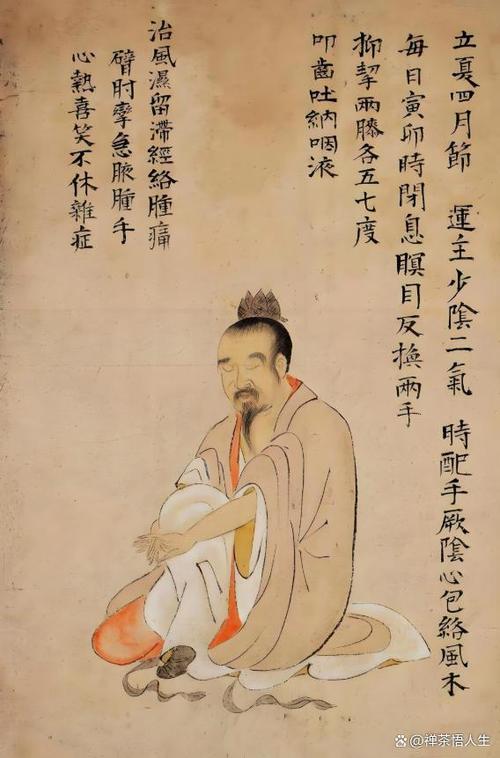 立夏四月節　運主少陰二氣　時配手厥陰心包絡風木
每日寅卯時閉息瞑目反換兩手
抑挈兩膝各五七度
叩齒吐納咽液
治風濕留滯經絡腫痛
臂肘攣急腋腫手
心熱喜笑不休雜症
@禅茶悟人生